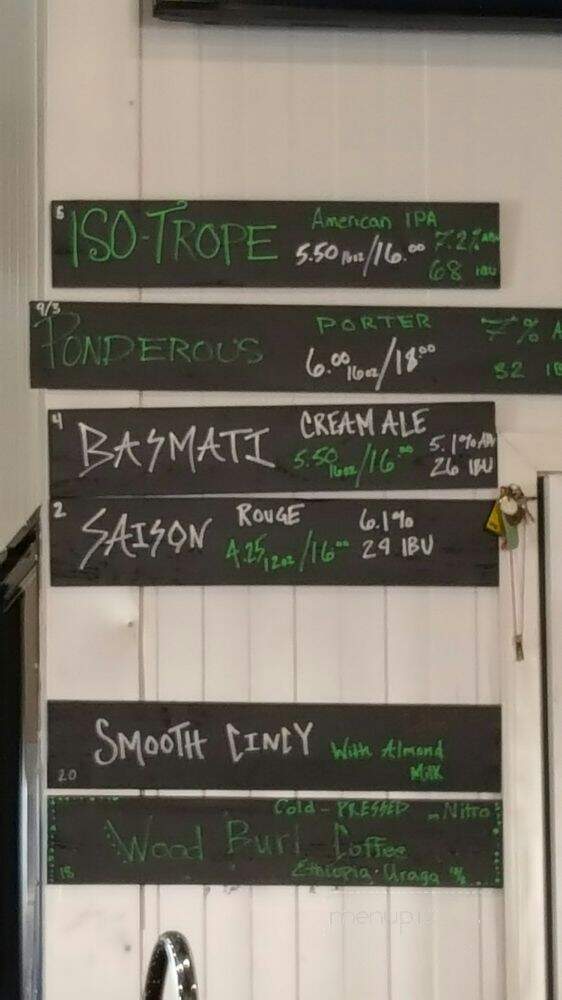 5
ISO-TROPE
American IPA
5.50 16oz/16.00
7.2% ABV
68 IBU
9/3
PONDEROUS
PORTER
6.00 16oz/18.00
7% A
32 IB
4
BASMATI
CREAM ALE
5.50 16oz/16.00
5.1% ABV
26 IBU
2
SAISON
ROUGE
4.25 12oz/16.00
6.1%
29 IBU
SMOOTH CINCY
With Almond
Milk
20
Cold-PRESSED
Nitro
Wood Burl Coffee
Ethiopia · Uraga
18